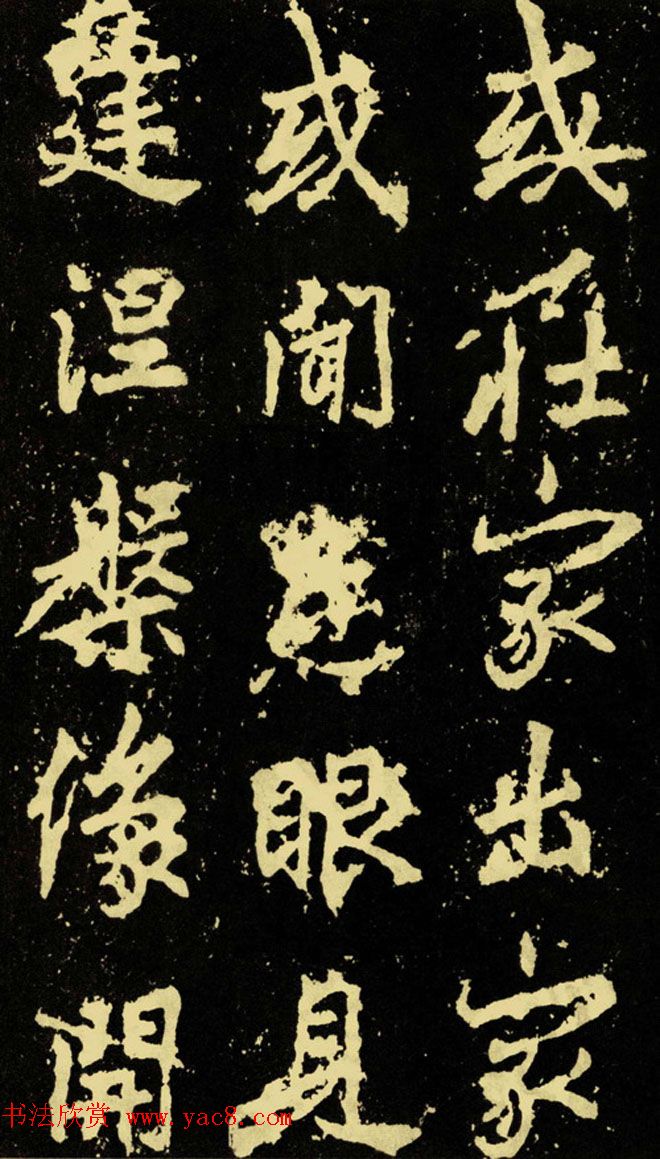 或家出家
或聞眼見
涅槃像開
书法欣赏 www.yac8.com